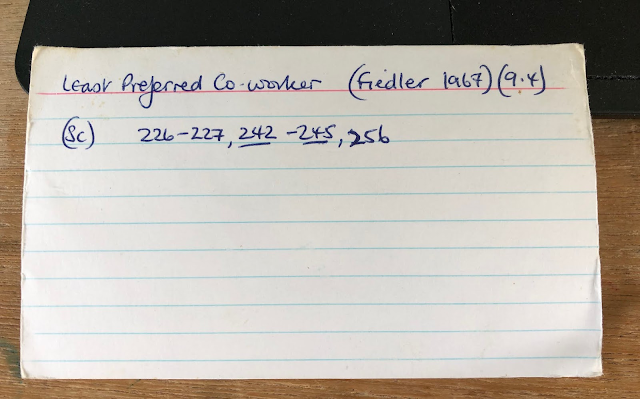 Least Preferred Co-worker (Fiedler 1967) (9.4)
(Sc) 226-227, 242-245, 256